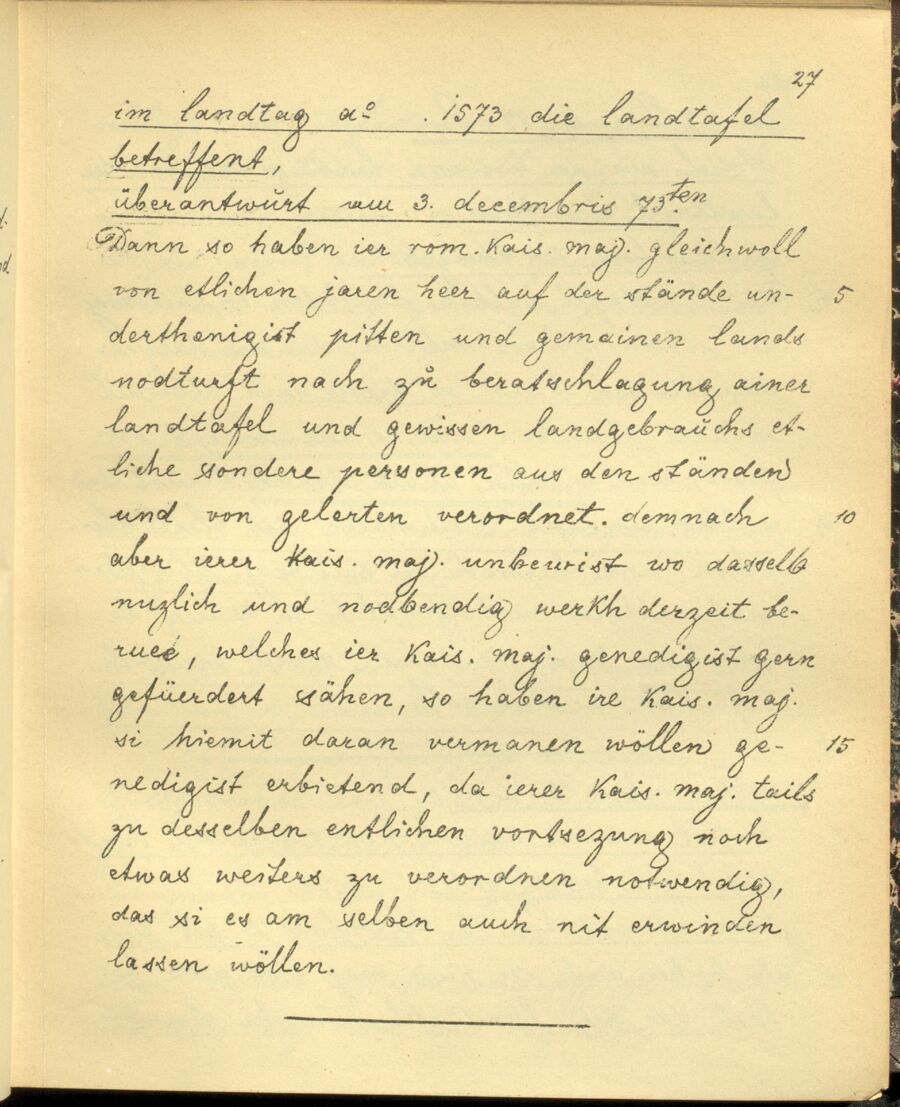 27
im landtag aº . 1573 die landtafel
betreffent,
überantwůrt am 3. decembris 73.ten
Dann so haben ier rom. Kais. maj. gleichwoll
von etlichen jaren heer auf der stände un-
5
derthenigist pitten und gemainen lands
nodturft nach zů beratschlagung ainer
landtafel und gewissen landgebraůchs et-
liche sondere personen aus den ständen
und von gelerten verordnet. demnach
10
aber ierer Kais. maj. unbewist wo dasselb
nuzlich und nodbendig werkh derzeit be-
ruee, welches ier Kais. maj. genedigist gern
gefüerdert sähen, so haben ire Kais. maj.
si hiemit daran vermanen wöllen ge-
15
nedigist erbietend, da ierer Kais. maj. tails
zu desselben entlichen vortsezung noch
etwas weiters zu verordnen notwendig,
das si es am selben auch nit erwinden
lassen wöllen.